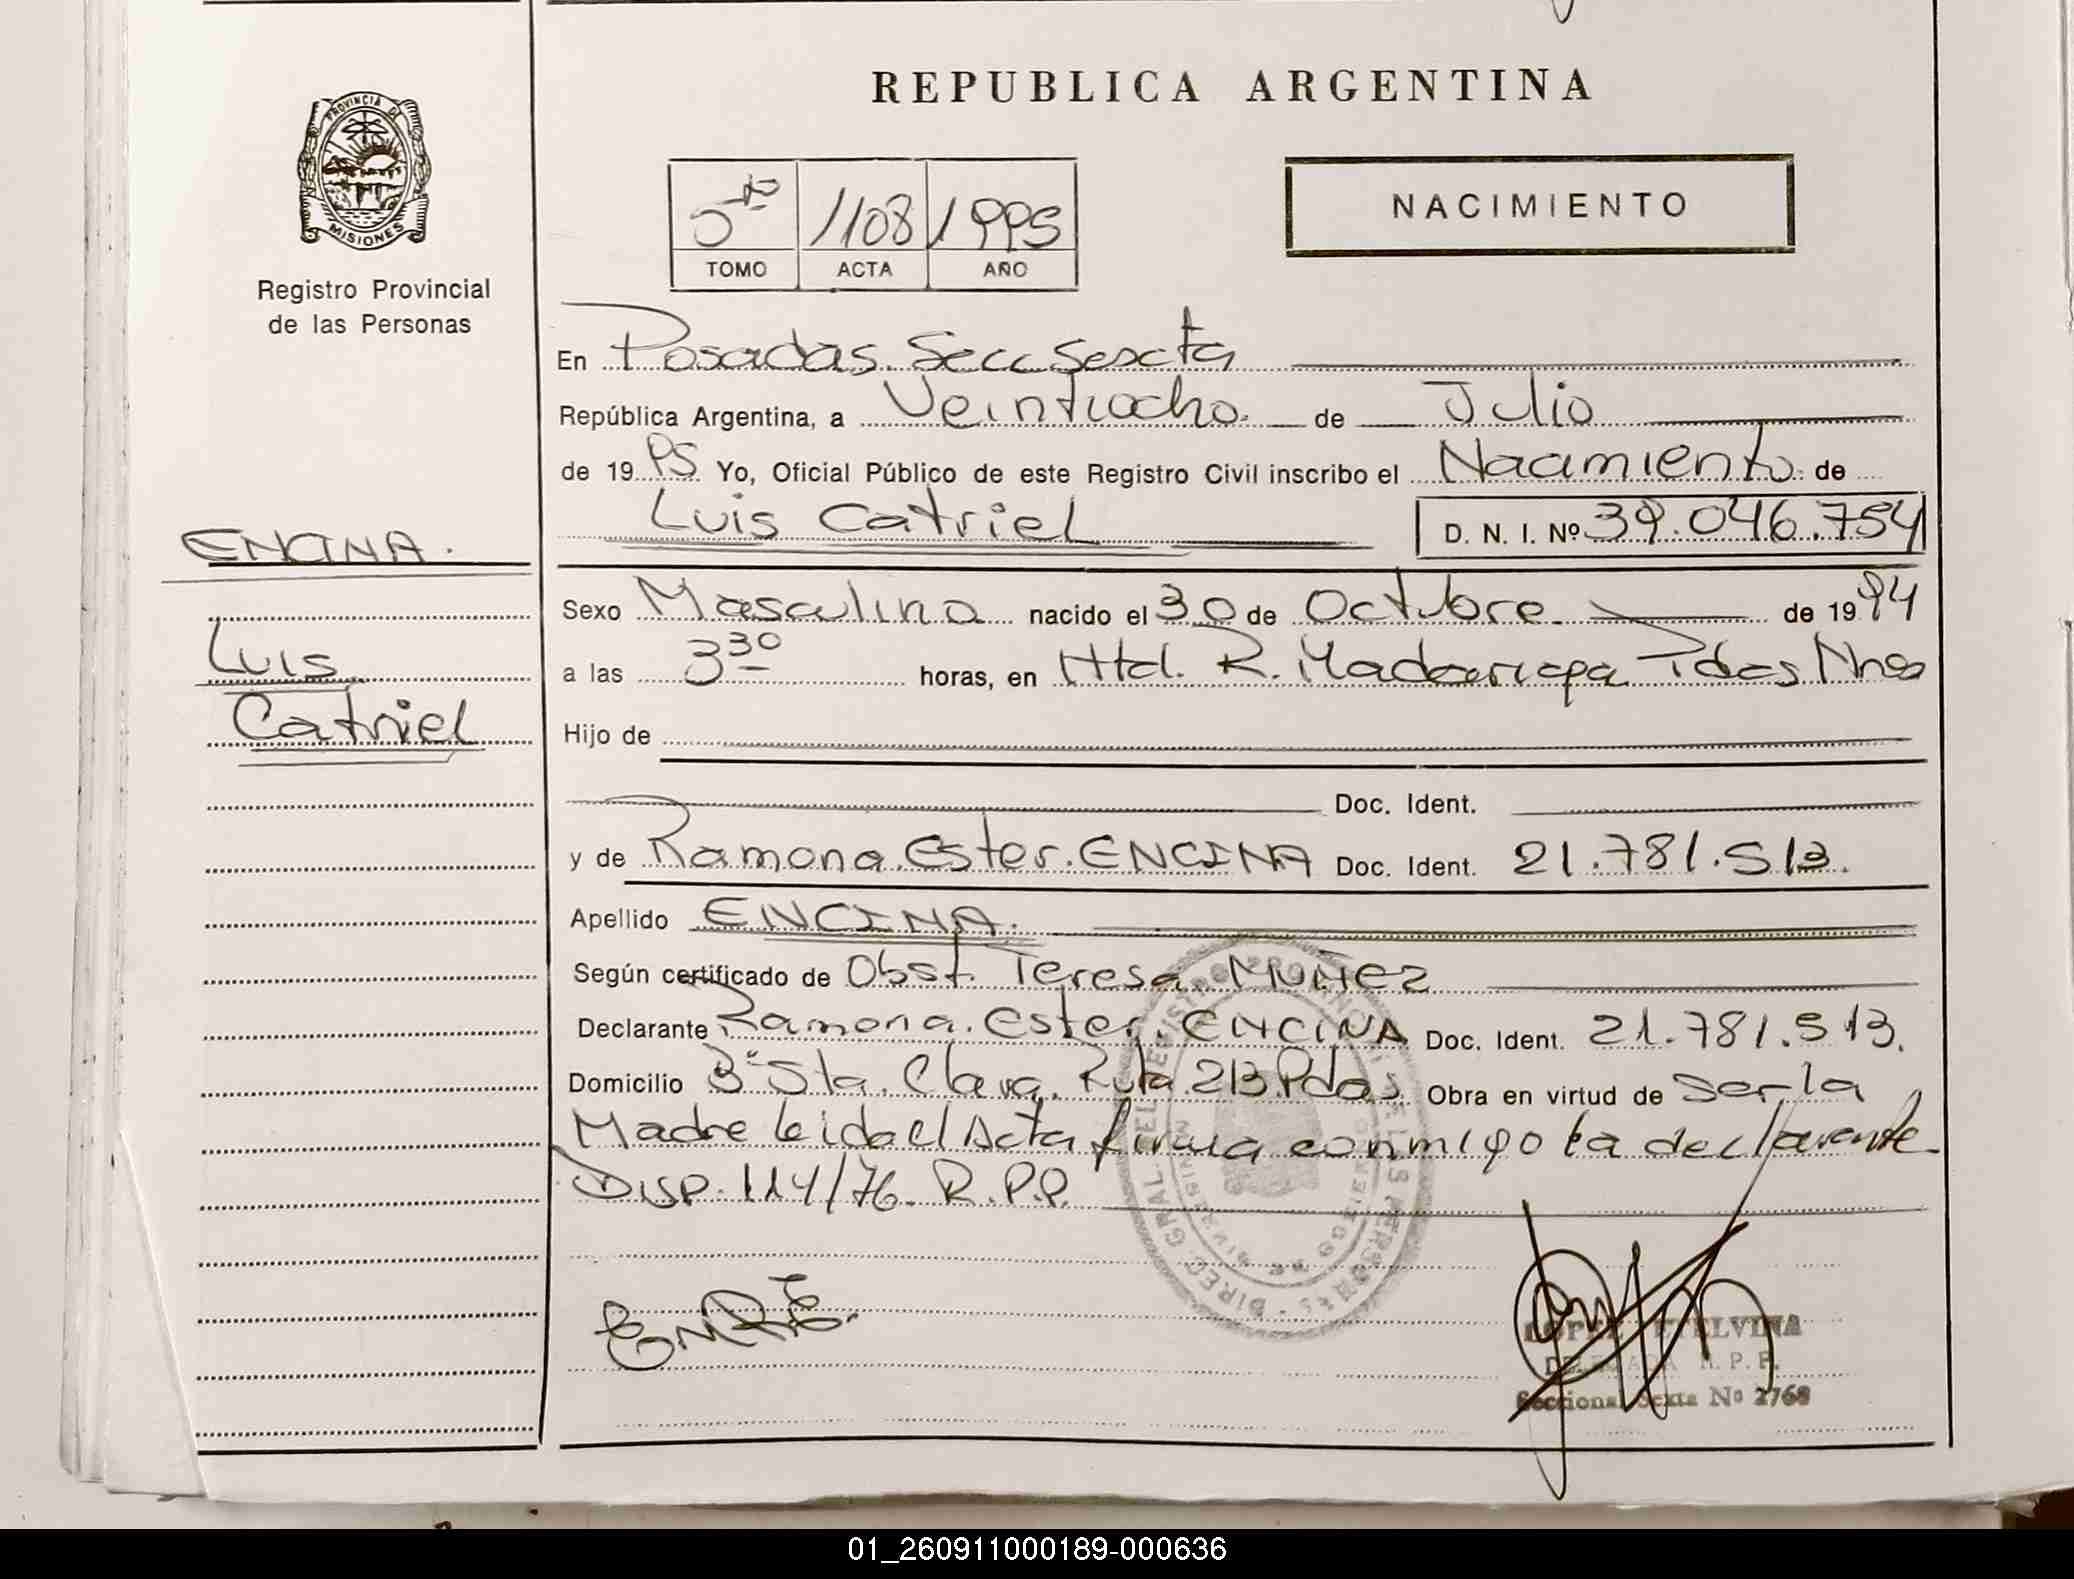 REPUBLICA ARGENTINA
PROVINCIA DE
MISIONES
Registro Provincial
de las Personas
5to 1108 1995
TOMO ACTA AÑO
NACIMIENTO
En Posadas Secc Sexta
República Argentina, a Veintiocho de Julio
de 1995 Yo, Oficial Público de este Registro Civil inscribo el Nacimiento de
Luis Catriel D. N. I. Nº 39.046.754
ENCINA.
Luis
Catriel
Sexo Masculino nacido el 30 de Octubre de 1994
a las 3 30 horas, en Htal. R. Madariaga Pdas Mnes
Hijo de
Doc. Ident.
y de Ramona Ester ENCINA Doc. Ident. 21.781.513.
Apellido ENCINA.
Según certificado de Obst. Teresa MUÑEZ
Declarante Ramona Ester ENCINA Doc. Ident. 21.781.513.
Domicilio Bº Sta. Clara Ruta 213 Pdas Obra en virtud de Ser la
Madre leida el Acta firma conmigo la declarante
Disp. 114/76 R.P.P.
LOPEZ ETELVINA
DELEGADA R. P. P.
Seccional Sexta Nº 2768
01_260911000189-000636